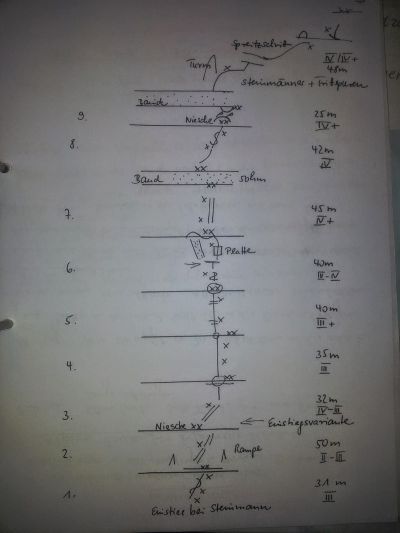 Spreitzschritt
IV/IV+
48m
Turm
Steinmänner + Trittspuren
Band
9.
Niesche xx
25m
IV+
8.
42m
V
Band
50hm
7.
45m
IV+
Platte
6.
40m
III-IV
5.
40m
III+
4.
35m
III
3.
32m
IV-III
Niesche xx
Einstiegsvariante
2.
Rampe
50m
II-III
1.
31m
III
Einstieg bei Steinmann